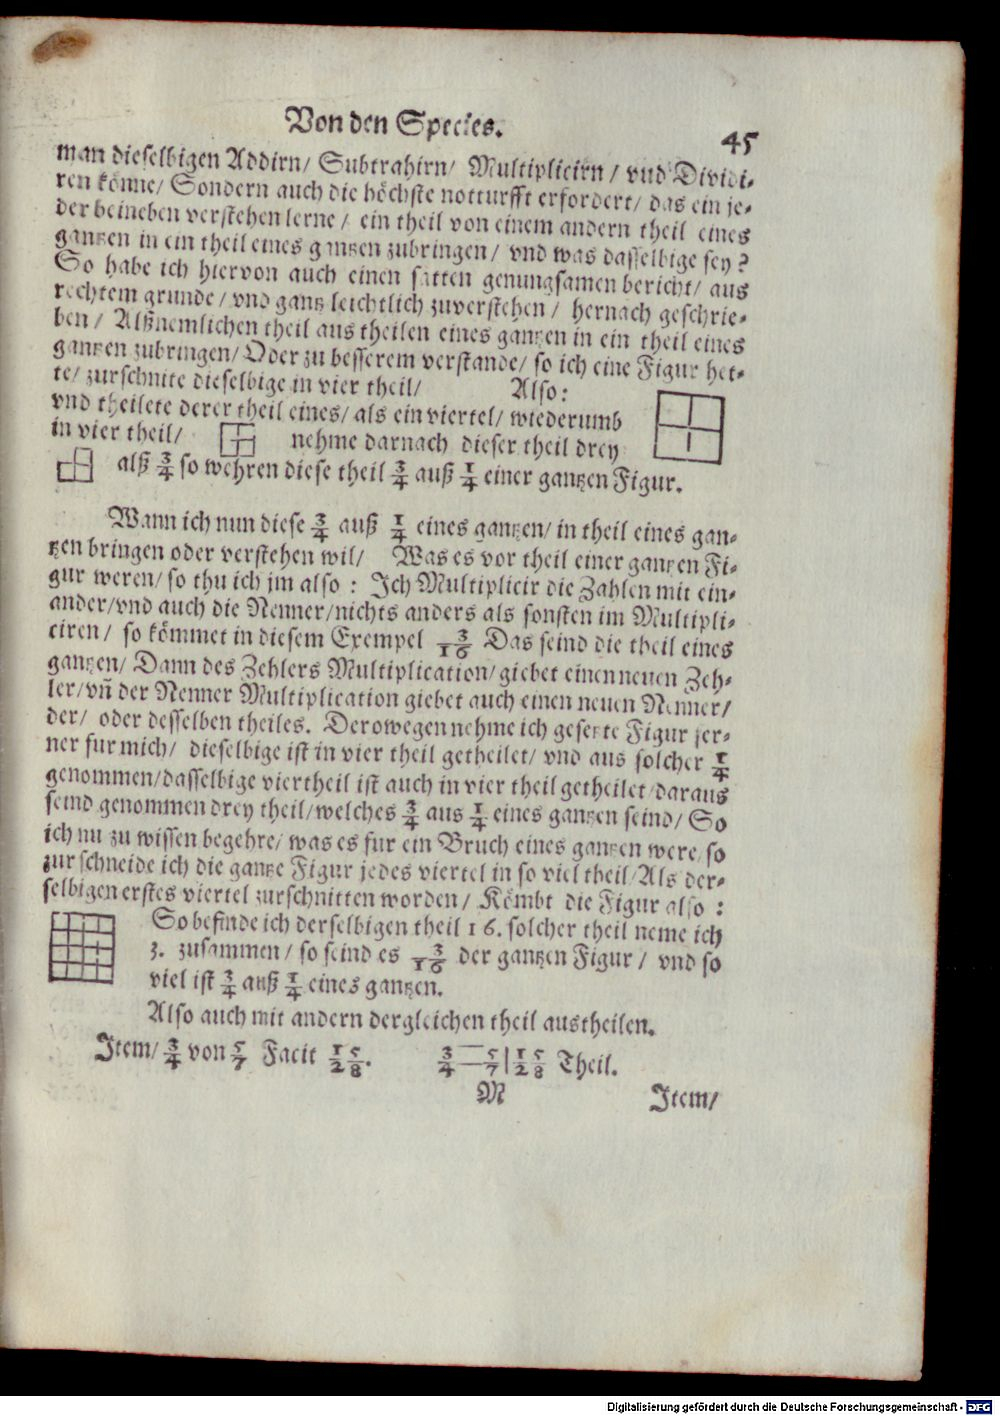 Von den Species.
45
man dieselbigen Addirn/ Subtrahirn/ Multiplicirn/ vnd Dividi-
ren könne/ Sondern auch die höchste notturfft erfordert/ das ein je-
der beineben verstehen lerne/ ein theil von einem andern theil eines
gantzen in ein theil eines gantzen zubringen/ vnd was dasselbige sey?
So habe ich hiervon auch einen satten genungsamen bericht/ aus
rechtem grunde/ vnd gantz leichtlich zuverstehen/ hernach geschrie-
ben/ Alßnemlichen theil aus theilen eines gantzen in ein theil eines
gantzen zubringen/ Oder zu besserem verstande/ so ich eine Figur het-
te/ zurschnite dieselbige in vier theil/ Also:
vnd theilete derer theil eines/ als ein viertel/ wiederumb
in vier theil/ nehme darnach dieser theil drey
alß 3/4 so wehren diese theil 3/4 auß 1/4 einer gantzen Figur.
Wann ich nun diese 3/4 auß 1/4 eines gantzen/ in theil eines gan-
tzen bringen oder verstehen wil/ Was es vor theil einer gantzen Fi-
gur weren/ so thu ich jm also: Ich Multiplicir die Zahlen mit ein-
ander/ vnd auch die Nenner/ nichts anders als sonsten im Multipli-
ciren/ so kömmet in diesem Exempel 3/16 Das seind die theil eines
gantzen/ Dann des Zehlers Multiplication/ giebet einen neuen Zeh-
ler/ vñ der Nenner Multiplication giebet auch einen neuen Nenner/
der/ oder desselben theiles. Derowegen nehme ich gesetzte Figur fer-
ner fur mich/ dieselbige ist in vier theil getheilet/ vnd aus solcher 1/4
genommen/ dasselbige viertheil ist auch in vier theil getheilet/ daraus
seind genommen drey theil/ welches 3/4 aus 1/4 eines gantzen seind/ So
ich nu zu wissen begehre/ was es fur ein Bruch eines gantzen were/ so
zurschneide ich die gantze Figur jedes viertel in so viel theil/ Als der-
selbigen erstes viertel zurschnitten worden/ Kömbt die Figur also:
So befinde ich derselbigen theil 16. solcher theil neme ich
3. zusammen/ so seind es 3/16 der gantzen Figur/ vnd so
viel ist 3/4 auß 1/4 eines gantzen.
Also auch mit andern dergleichen theil austheilen.
Item/ 3/4 von 5/7 Facit 15/28. 3/4 — 5/7 | 15/28 Theil.
M Item/
Digitalisierung gefördert durch die Deutsche Forschungsgemeinschaft - DFG